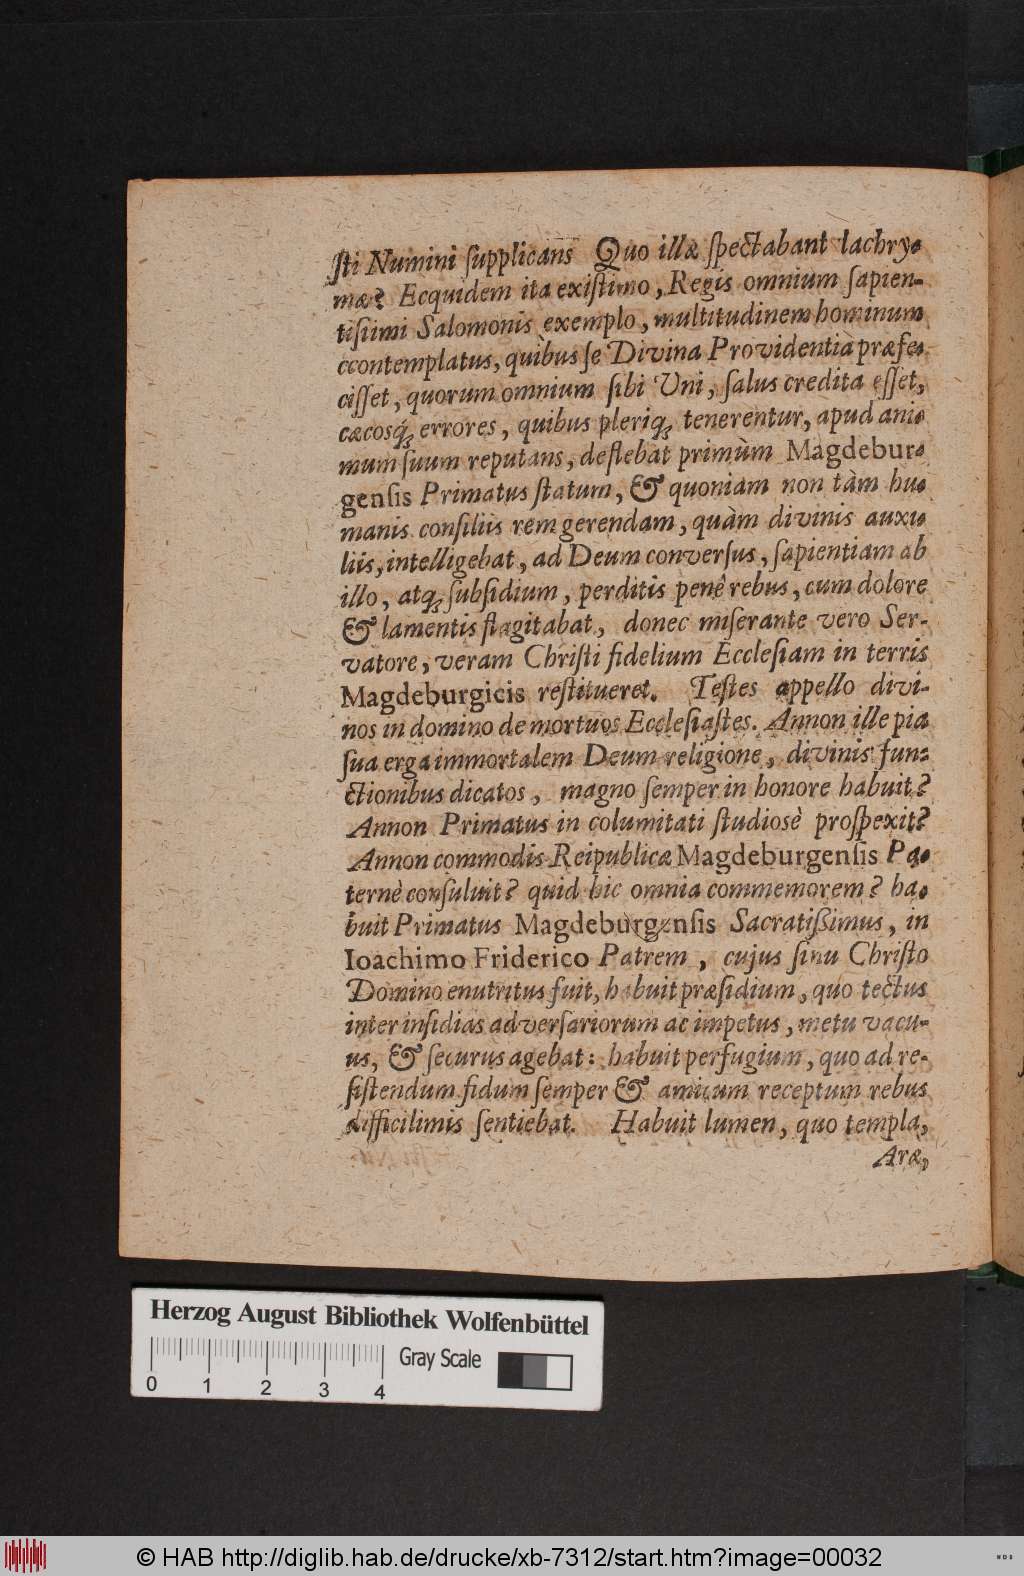 ſti Numini ſupplicans Quo illæ ſpectabant lachry-
mæ? Ecquidem ita exiſtimo, Regis omnium ſapien-
tiſiimi Salomonis exemplo, multitudinem hominum
ccontemplatus, quibus ſe Divina Providentia præfe-
ciſſet, quorum omnium ſibi Uni, ſalus credita eſſet,
cæcosq́; errores, quibus pleriq; tenerentur, apud ani-
mum ſuum reputans, deflebat primùm Magdebur-
genſis Primatus ſtatum, & quoniam non tàm hu-
manis conſiliis rem gerendam, quàm divinis auxi-
liis, intelligebat, ad Deum converſus, ſapientiam ab
illo, atq; ſubſidium, perditis penè rebus, cum dolore
& lamentis flagitabat, donec miſerante vero Ser-
vatore, veram Chriſti fidelium Eccleſiam in terris
Magdeburgicis reſtitueret. Teſtes appello divi-
nos in domino de mortuos Eccleſiaſtes. Annon ille pia
ſua erga immortalem Deum religione, divinis fun-
ctionibus dicatos, magno ſemper in honore habuit?
Annon Primatus in columitati ſtudiosè proſpexit?
Annon commodis Reipublicæ Magdeburgenſis Pa-
ternè conſuluit? quid hic omnia commemorem? ha-
buit Primatus Magdeburgenſis Sacratiſſimus, in
Ioachimo Friderico Patrem, cujus ſinu Chriſto
Domino enutritus fuit, habuit præſidium, quo tectus
inter inſidias adverſariorum ac impetus, metu vacu-
us, & ſecurus agebat: habuit perfugium, quo ad re-
ſiſtendum fidum ſemper & amicum receptum rebus
difficilimis ſentiebat. Habuit lumen, quo templa,
Aræ,
Herzog August Bibliothek Wolfenbüttel
Gray Scale
0 1 2 3 4
© HAB http://diglib.hab.de/drucke/xb-7312/start.htm?image=00032